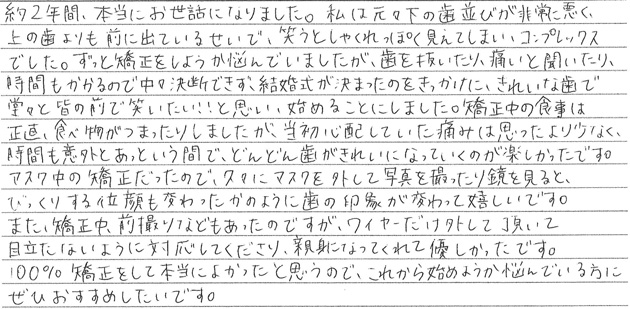 約2年間、本当にお世話になりました。私は元々下の歯並びが非常に悪く、
上の歯よりも前に出ているせいで、笑うとしゃくれっぽく見えてしまい、コンプレックス
でした。ずっと矯正をしようか悩んでいましたが、歯を抜いたり、痛いと聞いたり、
時間もかかるので中々決断できず、結婚式が決まったのをきっかけに、きれいな歯で
堂々と皆の前で笑いたい!!と思い、始めることにしました。矯正中の食事は
正直、食べ物がつまったりしましたが、当初心配していた痛みは思ったより少なく、
時間も意外とあっという間で、どんどん歯がきれいになっていくのが楽しかったです。
マスク中の矯正だったので、久々にマスクを外して写真を撮ったり鏡を見ると、
びっくりする位顔も変わったかのように歯の印象が変わって嬉しいです。
また、矯正中、前撮りなどもあったのですが、ワイヤーだけ外して頂いて
目立たないように対応してくださり、親身になってくれて優しかったです。
100%矯正をして本当によかったと思うので、これから始めようか悩んでいる方に
ぜひおすすめしたいです。